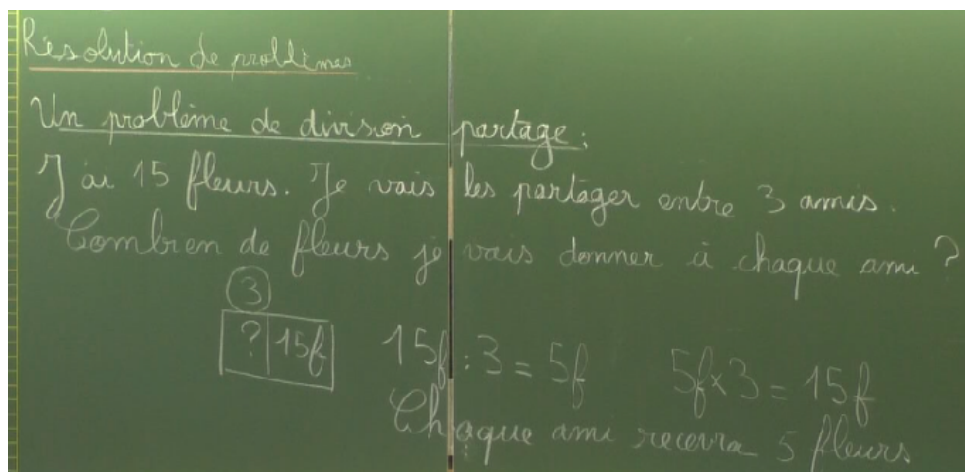 Résolution de problèmes
Un problème de division partage :
J'ai 15 fleurs. Je vais les partager entre 3 amis.
Combien de fleurs je vais donner à chaque ami ?
3
? 15f 15f : 3 = 5f 5f x 3 = 15f
Chaque ami recevra 5 fleurs